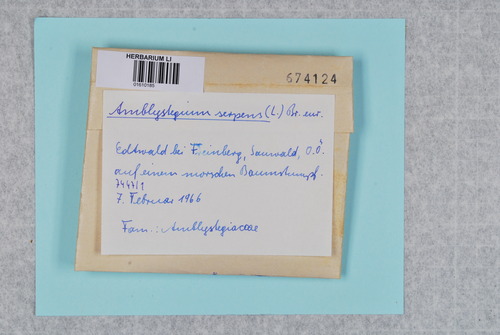 HERBARIUM LI
01010185
674124
Amblystegium serpens (L.) Br. eur.
Edtwald bei Freinberg, Sauwald, O.Ö.
auf einem morschen Baumstumpf.
7447/1
7. Februar 1966
Fam.: Amblystegiaceae